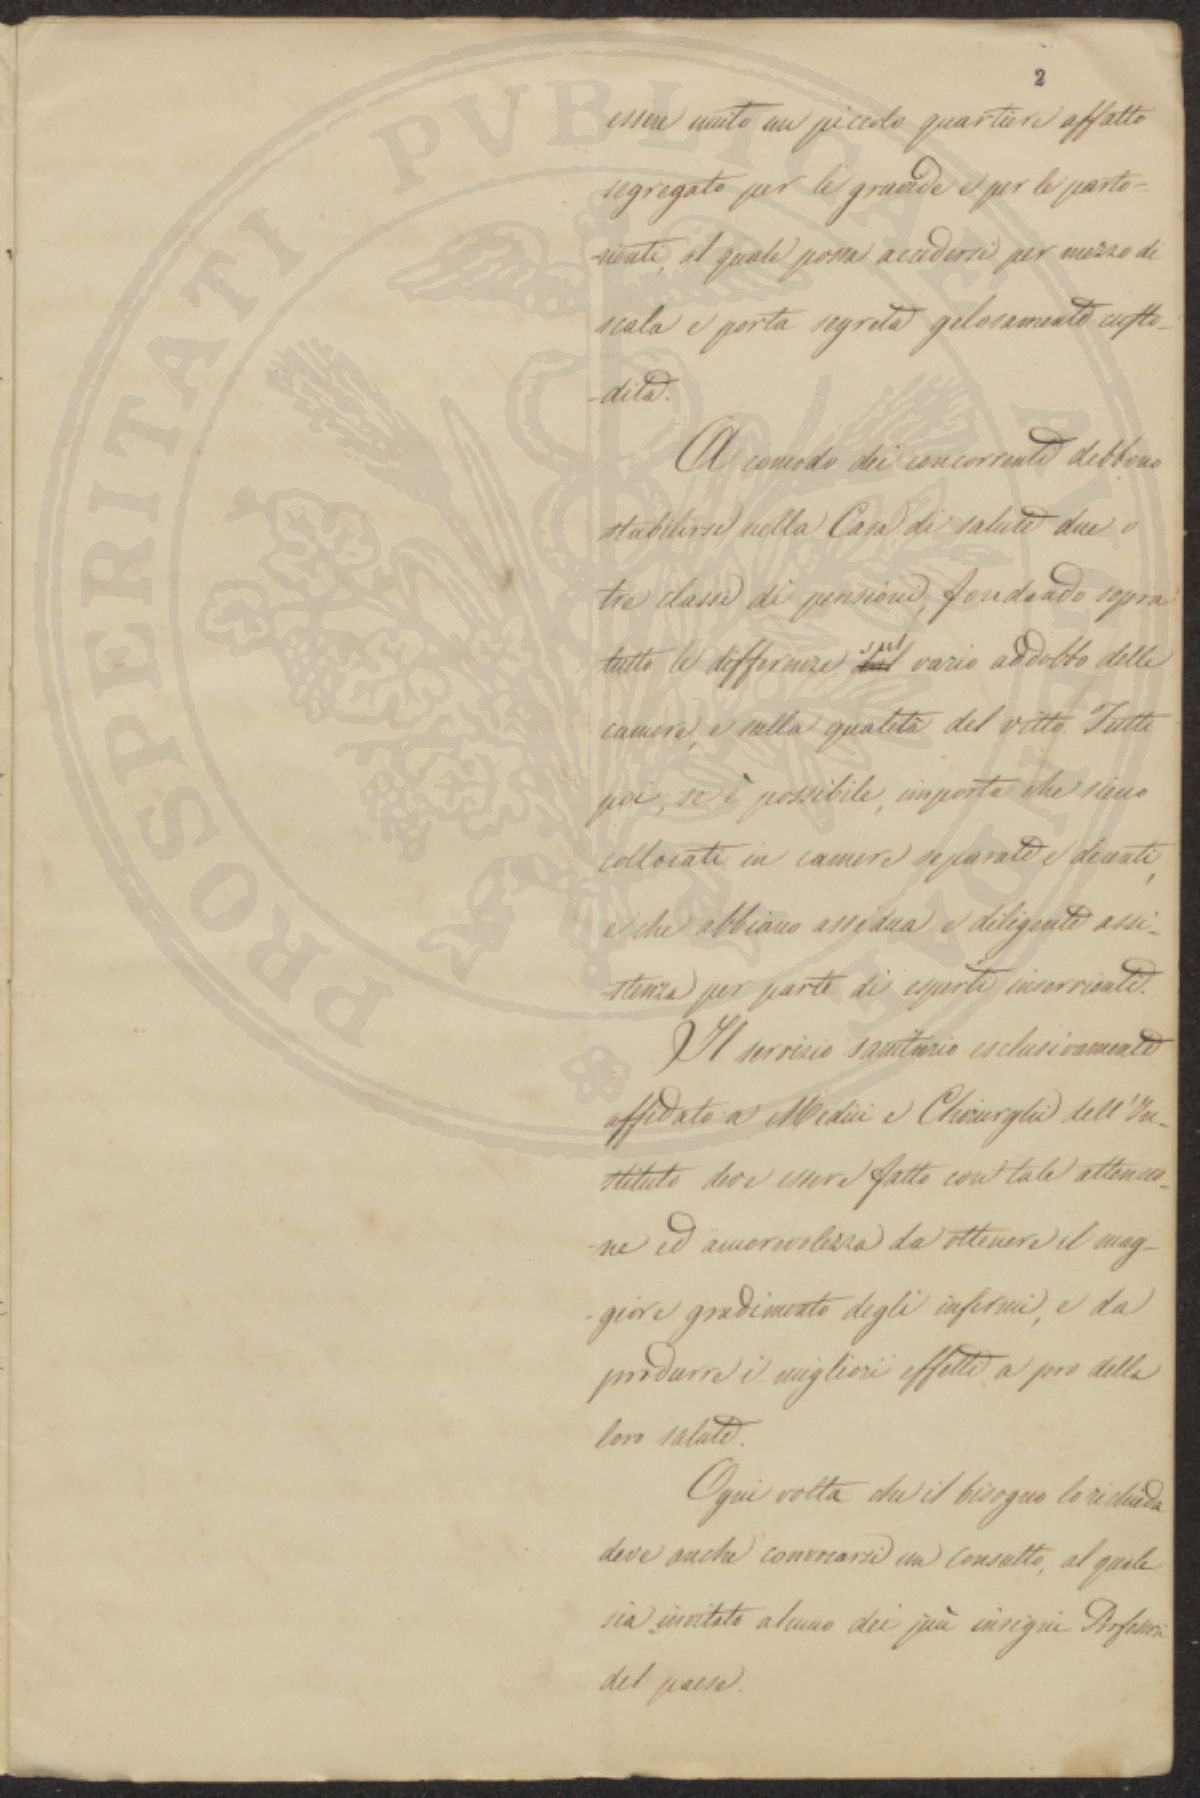 2
essere unito un piccolo quartiere affatto
segregato per le gravide e per le parto-
-rienti, al quale possa accedersi per mezzo di
scala e porta segreta gelosamente custo-
-dita.
A comodo dei concorrenti debbono
stabilirsi nella Casa di salute due o
tre classi di pensioni, fondando sopra
tutto le differenze sul vario addobbo delle
camere, e sulla qualità del vitto. Tutti
poi, se è possibile, importa che sieno
collocati in camere separate e decenti,
e che abbiano assidua e diligente assi-
stenza per parte di esperti inservienti.
Il servizio sanitario esclusivamente
affidato a Medici e Chirurghi dell'In-
stituto deve essere fatto con tale attenzio-
-ne ed amorevolezza da ottenere il mag-
-giore gradimento degli infermi, e da
produrre i migliori effetti a pro della
loro salute.
Ogni volta che il bisogno lo richieda
deve anche convocarsi un Consulto, al quale
sia invitato alcuno dei più insigni Professori
del paese.
PROSPERITATI PVBLICAE